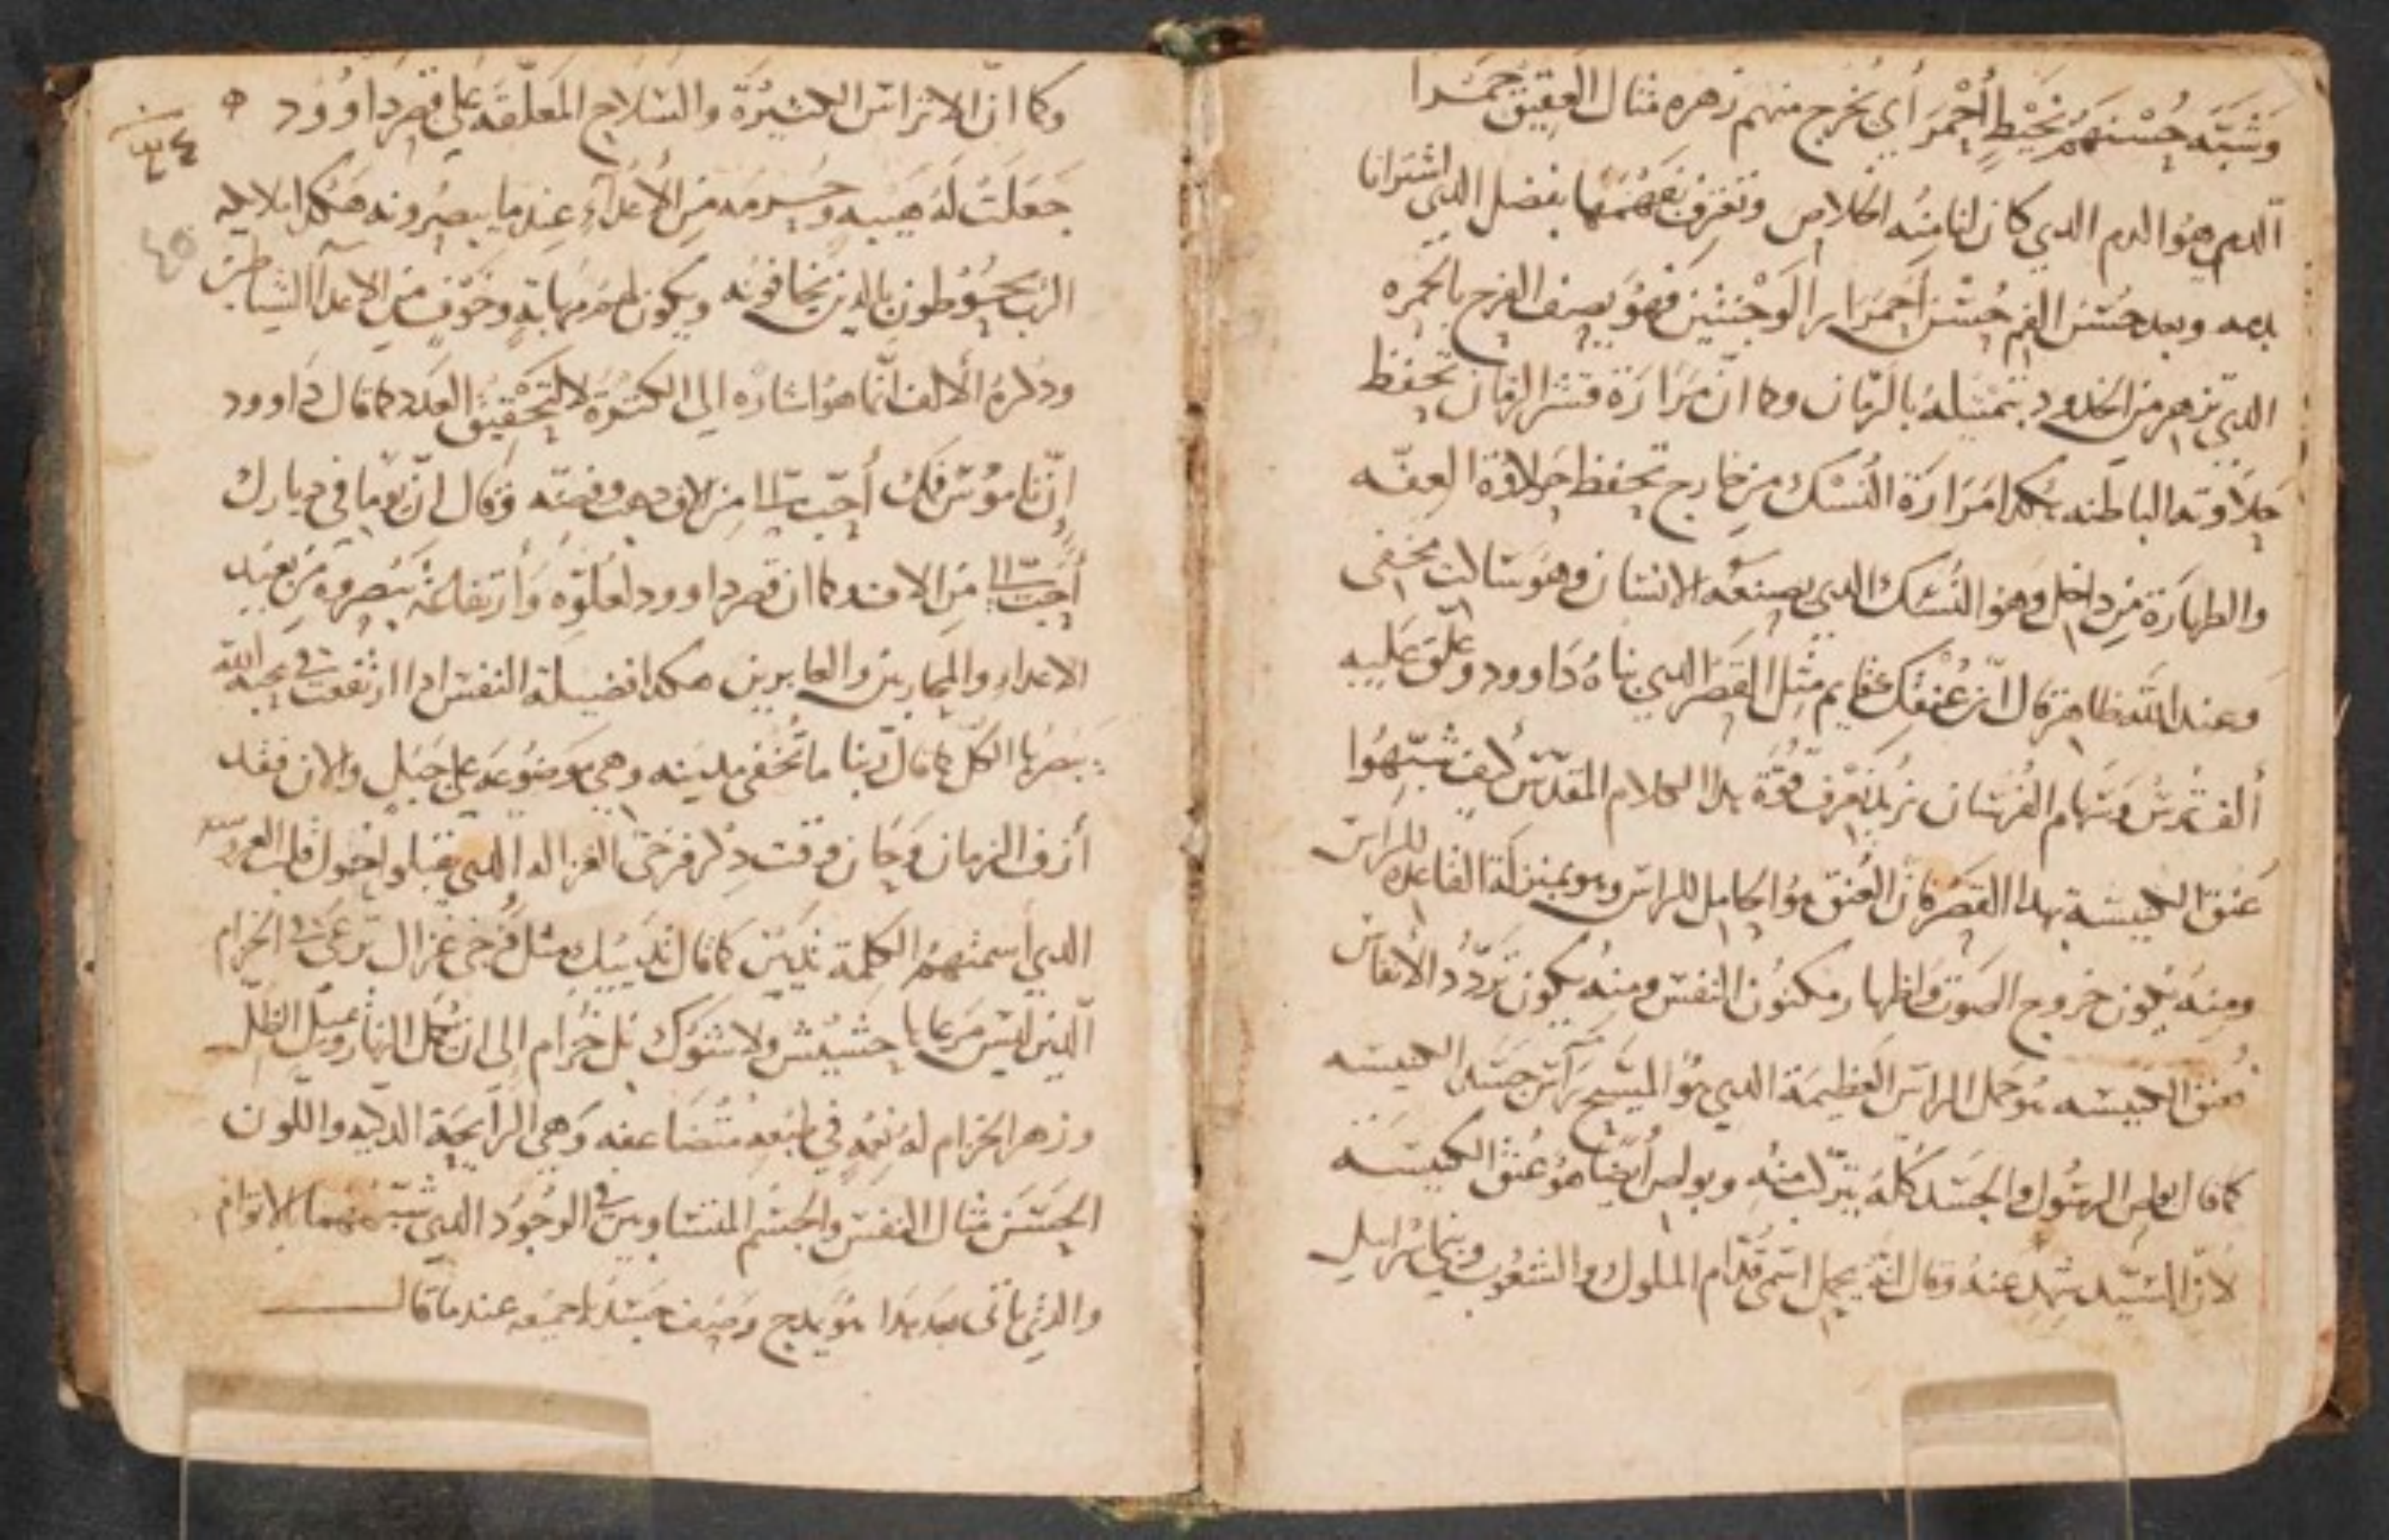 وَشَبَّه حُسْنهُمْ بخَيْطٍ أَحْمَر أي يخرج منهم زهره مثال العقيق حمدا
الدم هوُ الدم الدي كان لنا مِنُه الخلاص ونعرف بفضل الدي اشترانا
بدمه وبعد حسْنَ الفم حُسْنَ احمرار الوجنتين فهوَ يصف الفرح بالحمره
الدي تزهر من الخدود بتمثيلهُ بالرمّان وكما انّ مرَارَة قشر الرمان تحفظ
حَلاَوته الباطنه هكدا مَرَارَة النُسْك من خارج تحفظ حَلاوَة العفّه
والطهارَة مِن داخل وَهو النُسْك الدي يصنعَه الانسان وهوَ سالك مخفى
وَعند اللّه ظاهر قال انّ عُنقكِ قايم مثِل القَصْر الدي بناهُ دَاوود وعَلّق عَلَيه
ألف تُرسْ وسَهام الفُرسَان نريد نعْرفَ قوّة هدا الكلام المقدّس كيف شبّهُوا
عُنق الكنيسَة بهدا القصْر فان العُنق هوُ الحامل للراس وهو بمنزلَة القاعده للراس
ومنِهَ يكون خروج الصوت واظهار مكنُون النفس ومنِهُ يكون تَردّدُ الأنفاس
فعنق الكنيسَه هُو حمل الراس العَظيمَة الدي هُوَ المسيح رَأس جسَد الكنيسَه
كما قال بولس الرسُول والجسَد كُلّهُ يتركب منهُ وبولس أيضًا هوُ عُنق الكنيسَه
لانّ السيّد شهِد عنهُ وقال انهُ يحمل اسْمي قدّام الملوك والشعُوب وبني اسْرَايل
وكما انّ الاتراس الكثيرَة والسَلاح المَعَلّقه علَى قصْر دَاوُود
جَعَلَتْ لهُ هيبه من الأعدآءِ عِند ما يبصُرونه هَكدا ملايكه
الرَب يحوُطون بالدين يخافونه ويكون لهم مهابةٍ وخَوْف من الاعدآ الشياطين
ودكرهُ الألف انّما هوُ اشارَه الي الكثرَة لا لتَحْقيْقُ العَدد كما قال دَاوود
إنّ نامُوسَ فمك أحَبّ اليّ مِن الاف دهب وفضّه وَقال انّ يومًا في ديارك
أحَبّ اليّ مِن الاف وكما ان قصر داوود لعُلوّه وَارتفاعهُ تبصروه مِن بَعيد
الاعداءِ والمحاربين والعابرين هكدا فضيلة النفس ادا ارتفعت في محبه الله
يبَصُرها الكلّ كما قال رَبنا ما تُخفى مدينه وهي مَوضوُعَه علي جَبَلٍ والان فقد
أزف الزمان وَحَان وَقت دِكر فرخَى الغزاله الدي
الدي أسمتهمُ الكلِمة ثديَين كما قال ثدييك مثل فرخَي غزال ترعَى في الخزام
الدين ليْسَ مَرعاها حَشيْش ولا شَوْك بل خُزام إلى ان يُكمل النهارُ ويميل الظلّ
وزهر الخزام لهُ نِعْمَةٍ في طبْعهِ متُضَاعفه وَهي الرَايحَة الدكيّه واللّون
الحَسَن مثال النفس والجسْم المتسَاويين في الوجُود الدي شبّههما بالاتوام